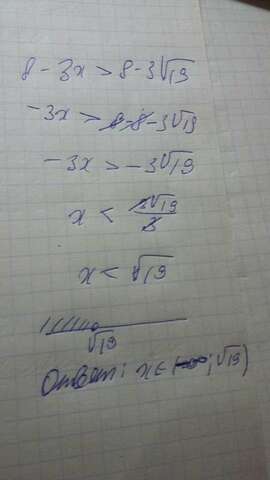 8 - 3x > 8 - 3√19
-3x > 8 - 8 - 3√19
-3x > -3√19
x < 3√19/3
x < √19
√19
Ответ: x ∈ (-∞; √19)